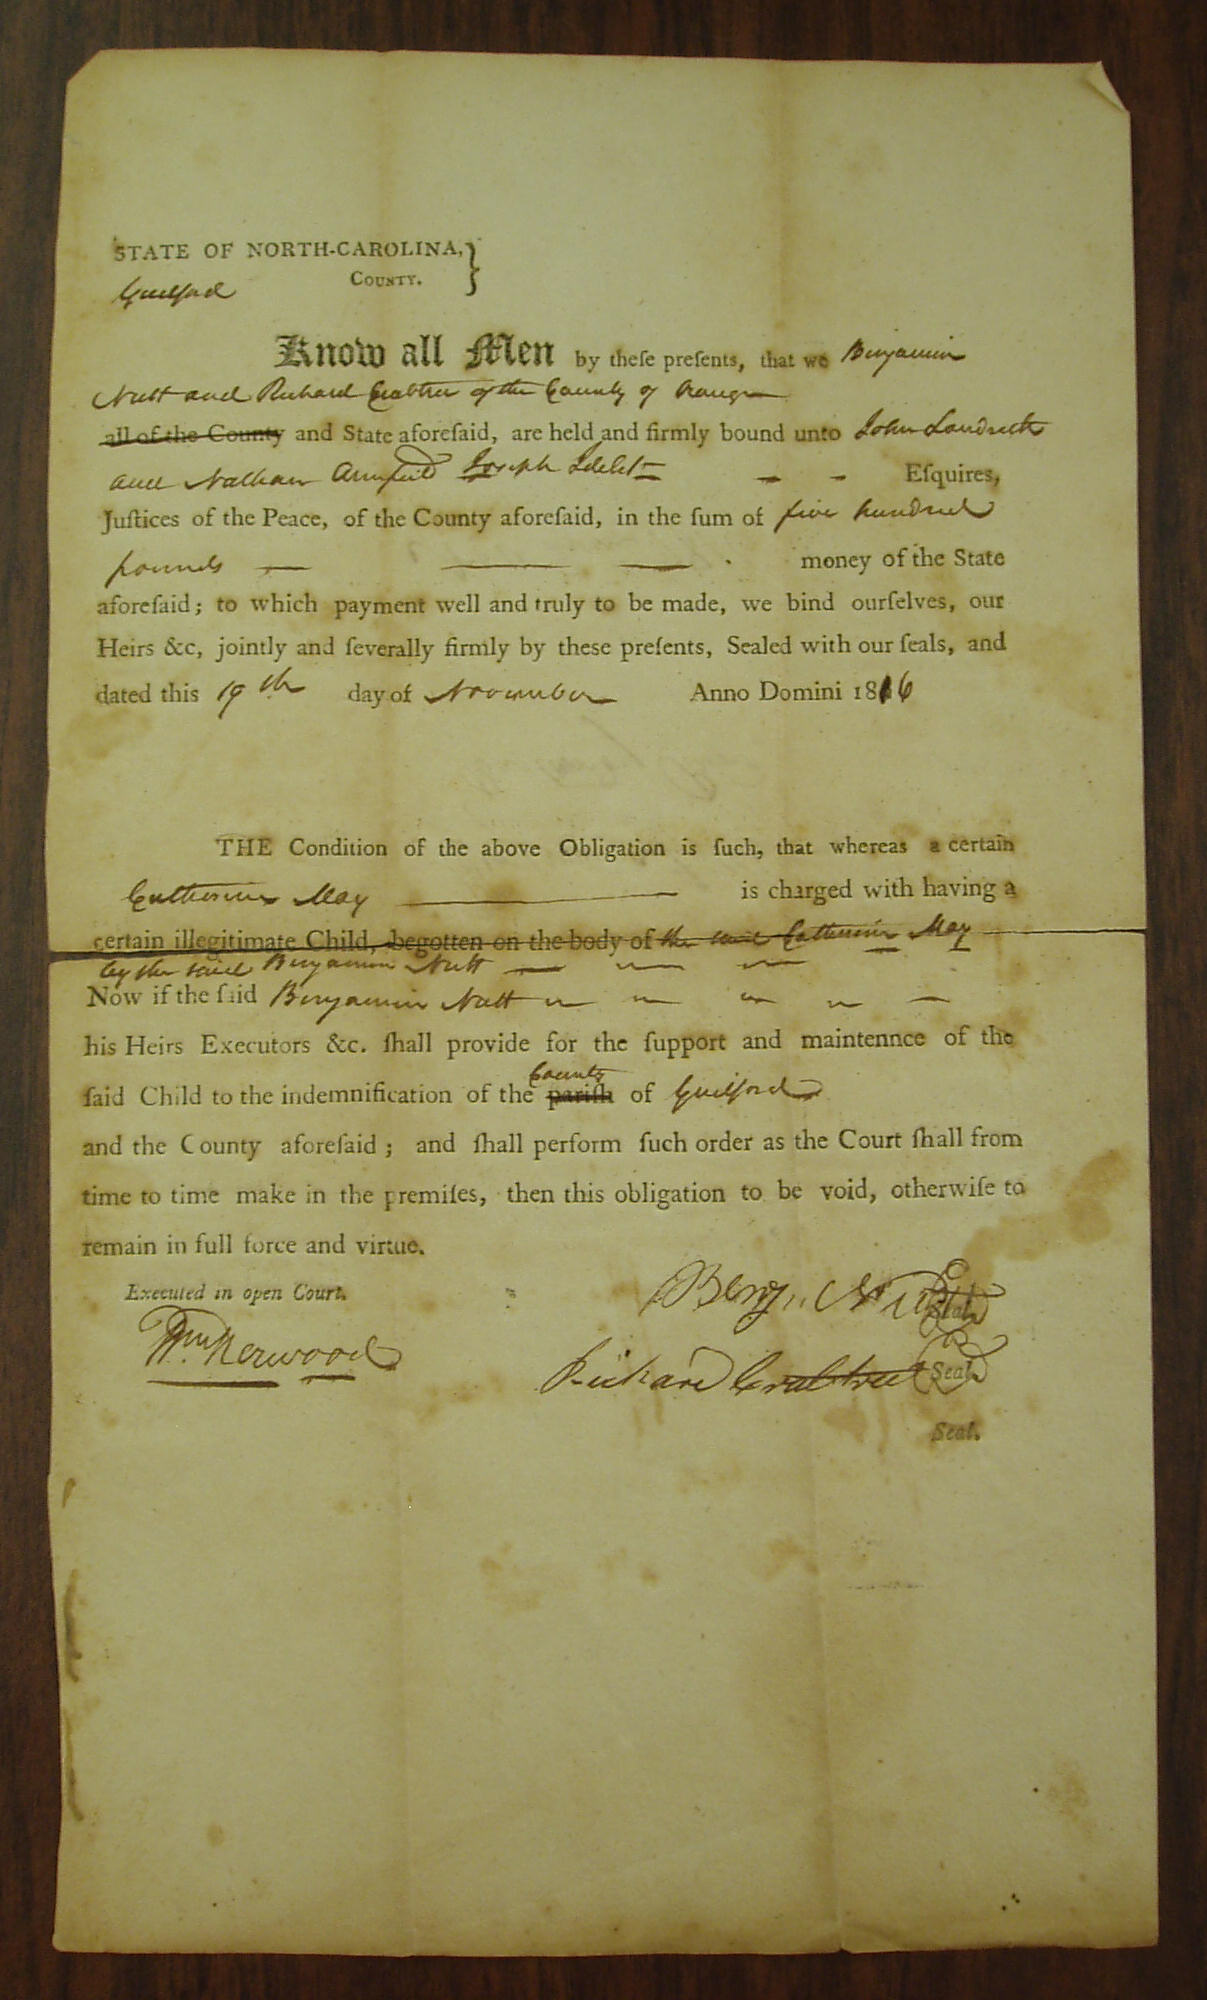 STATE OF NORTH-CAROLINA, }
COUNTY.
Guilford
Know all Men by theſe preſents, that we Benjamin
Nutt and Richard Crabtree of the County of Orange
all of the County and State aforeſaid, are held and firmly bound unto John Landreth
and Nathan Armfield Joseph
Eſquires,
Juſtices of the Peace, of the County aforeſaid, in the ſum of five hundred
pounds — — — money of the State
aforeſaid; to which payment well and truly to be made, we bind ourſelves, our
Heirs &c, jointly and ſeverally firmly by theſe preſents, Sealed with our ſeals, and
dated this 19th day of November Anno Domini 1816
THE Condition of the above Obligation is ſuch, that whereas a certain
Catherine May — is charged with having a
certain illegitimate Child, begotten on the body of the said Catherine May
by the said Benjamin Nutt — — —
Now if the ſaid Benjamin Nutt — — — — —
his Heirs Executors &c. ſhall provide for the ſupport and maintennce of the
County
ſaid Child to the indemnification of the pariſh of Guilford
and the County aforeſaid; and ſhall perform ſuch order as the Court ſhall from
time to time make in the premiſes, then this obligation to be void, otherwiſe to
remain in full force and virtue.
Executed in open Court.
Benj. Nutt Seal.
Wm. Norwood
Richard Crabtree Seal.
Seal.